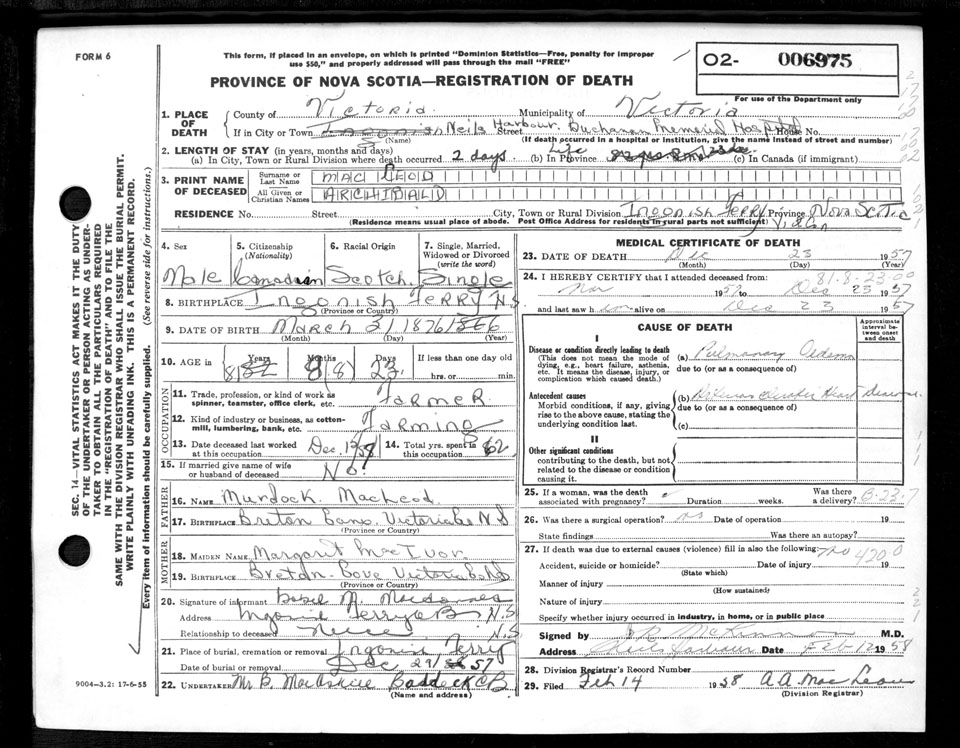 FORM 6
This form, if placed in an envelope, on which is printed "Dominion Statistics—Free, penalty for improper
use $50," and properly addressed will pass through the mail "FREE"
PROVINCE OF NOVA SCOTIA—REGISTRATION OF DEATH
02- 006975
For use of the Department only
1. PLACE OF DEATH
County of Victoria. Municipality of Victoria
If in City or Town Neils Harbour. Street Buchanan Memorial Hospital House No.
(Name) (If death occurred in a hospital or institution, give the name instead of street and number)
2. LENGTH OF STAY (in years, months and days)
(a) In City, Town or Rural Division where death occurred 2 days. (b) In Province Life (c) In Canada (if immigrant)
3. PRINT NAME OF DECEASED
Surname or Last Name MAC LEOD
All Given or Christian Names ARCHIBALD
RESIDENCE No. Street City, Town or Rural Division Ingonish Ferry Province Nova Scotia
(Residence means usual place of abode. Post Office Address for residents in rural parts not sufficient)
4. Sex 5. Citizenship (Nationality) 6. Racial Origin 7. Single, Married, Widowed or Divorced (write the word)
Male Canadian Scotch. Single
8. BIRTHPLACE Ingonish Ferry N.S.
(Province or Country)
9. DATE OF BIRTH March 21 1876
(Month) (Day) (Year)
10. AGE in Years Months Days If less than one day old
81 8 23 hrs. or min.
OCCUPATION
11. Trade, profession, or kind of work as spinner, teamster, office clerk, etc. Farmer
12. Kind of industry or business, as cotten-mill, lumbering, bank, etc. Farming
13. Date deceased last worked at this occupation Dec. 14. Total yrs. spent in this occupation 62
15. If married give name of wife or husband of deceased No.
FATHER
16. NAME Murdock MacLeod
17. BIRTHPLACE Breton Cove, Victoria Co N S
(Province or Country)
MOTHER
18. MAIDEN NAME Margaret MacIvor
19. BIRTHPLACE Breton Cove Victoria
(Province or Country)
20. Signature of informant M. Macdonald
Address Ingonish Ferry C B N.S.
Relationship to deceased Niece N.S
21. Place of burial, cremation or removal Ingonish Ferry
Date of burial or removal Dec 57
22. UNDERTAKER Mr B. MacAskill Baddeck CB
(Name and address)
MEDICAL CERTIFICATE OF DEATH
23. DATE OF DEATH Dec 23 1957
(Month) (Day) (Year)
81-8-23-00
24. I HEREBY CERTIFY that I attended deceased from:
Nov 1957 to Dec 23 1957
and last saw him alive on Dec 23 1957
CAUSE OF DEATH
Approximate interval between onset and death
I
Disease or condition directly leading to death
(This does not mean the mode of dying, e.g., heart failure, asthenia, etc. It means the disease, injury, or complication which caused death.)
(a) Pulmonary Oedema
due to (or as a consequence of)
Antecedent causes
Morbid conditions, if any, giving rise to the above cause, stating the underlying condition last.
(b) Heart Disease.
due to (or as a consequence of)
(c)
II
Other significant conditions
contributing to the death, but not related to the disease or condition causing it.
25. If a woman, was the death associated with pregnancy? Duration weeks. Was there a delivery?
26. Was there a surgical operation? no Date of operation 19
State findings Was there an autopsy?
27. If death was due to external causes (violence) fill in also the following:
Accident, suicide or homicide? Date of injury 19
(State which)
Manner of injury
(How sustained)
Nature of injury
Specify whether injury occurred in industry, in home, or in public place
Signed by McKinnon M.D.
Address Neils Harbour Date Feb 12 1958
28. Division Registrar's Record Number
29. Filed Feb 14 1958 A. A. MacLean
(Division Registrar)
SEC. 14—VITAL STATISTICS ACT MAKES IT THE DUTY
OF THE UNDERTAKER OR PERSON ACTING AS UNDER-
TAKER TO OBTAIN ALL THE PARTICULARS REQUIRED
IN THE "REGISTRATION OF DEATH" AND TO FILE THE
SAME WITH THE DIVISION REGISTRAR WHO SHALL ISSUE THE BURIAL PERMIT.
WRITE PLAINLY WITH UNFADING INK. THIS IS A PERMANENT RECORD.
Every item of information should be carefully supplied. (See reverse side for instructions.)
9004-3.2: 17-6-55